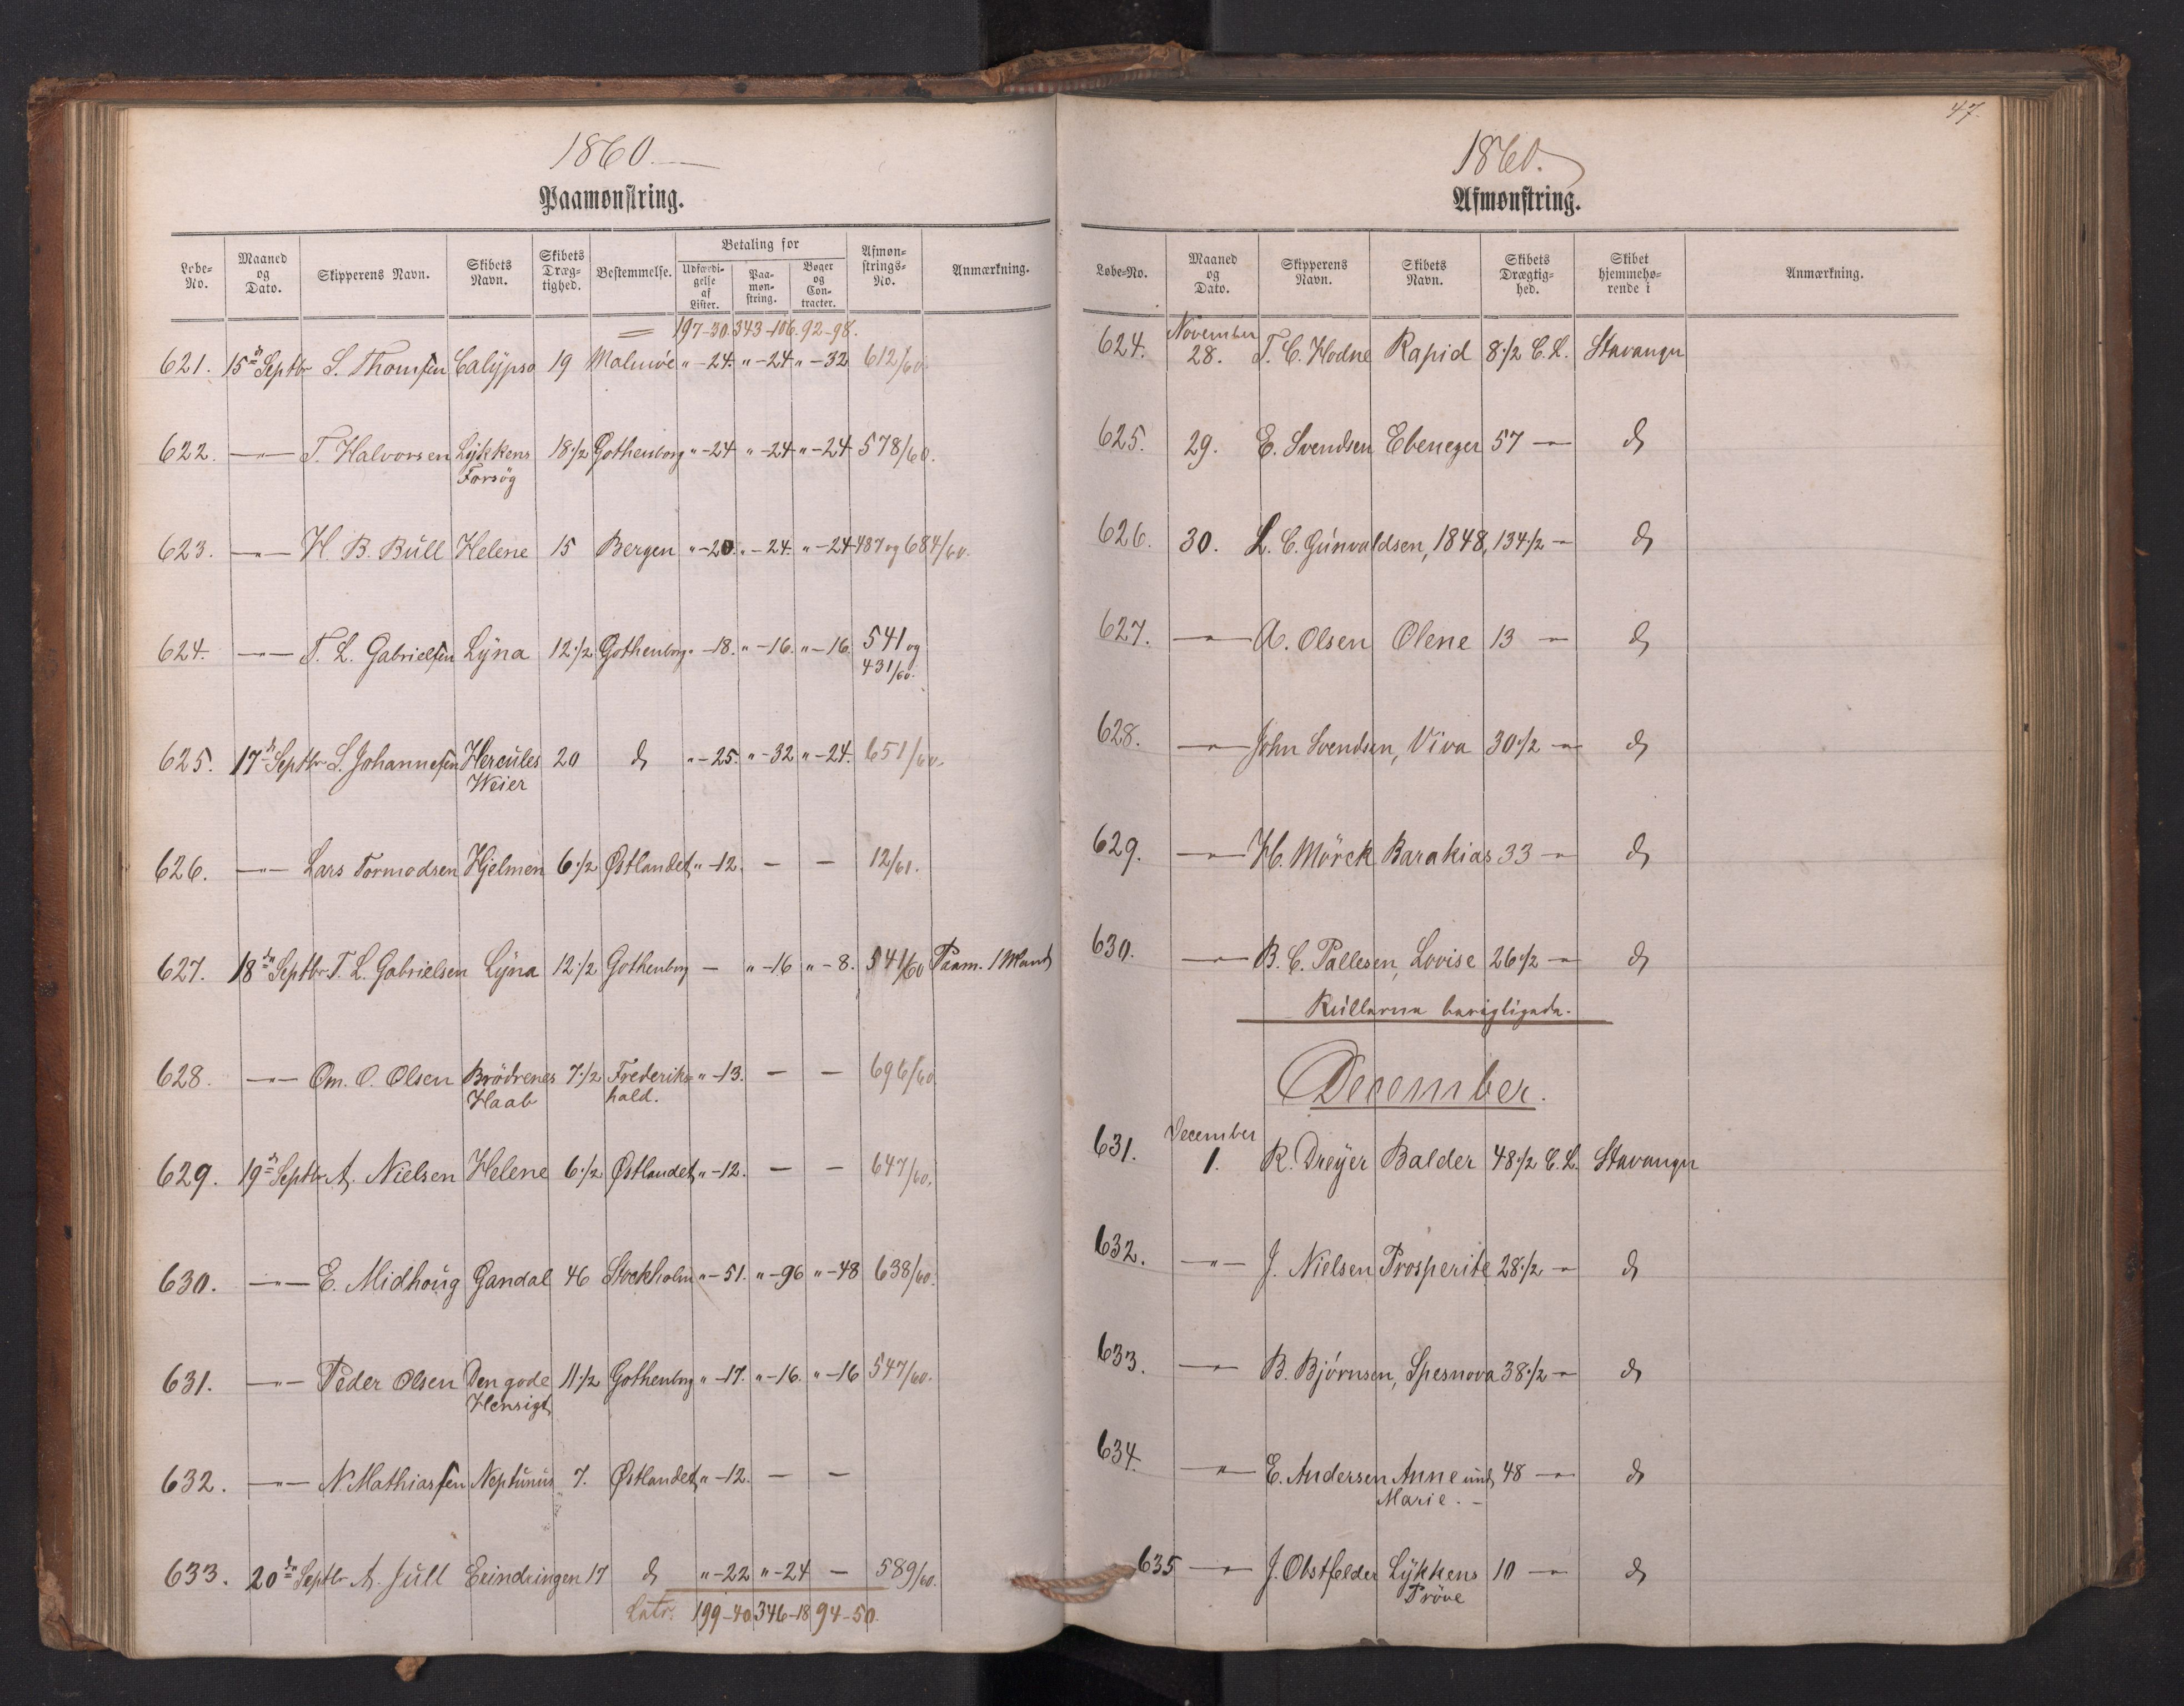 1860.
Paamønstring.
Løbe-No. Maaned og Dato. Skipperens Navn. Skibets Navn. Skibets Dræg-tighed. Bestemmelse. Betaling for Udfærdi-gelse af Lister. Paa-møn-string. Bøger og Con-tracter. Afmøn-strings-No. Anmærkning.
197-30. 343-106. 92-98.
621. 15de Septbr S. Thomsen Calypso 19 Malmöe " -24. " -24 " -32 612/60.
622. -"- T. Halvorsen Lykkens Forsög 18 1/2 Gothenborg " -24 " -24 " -24 578/60.
623. -"- H. B. Bull Helene 15 Bergen " -20. " -24. " -24 487 og 684/60.
624. -"- T. L. Gabrielsen Lyna 12 1/2 Gothenborg " -18. " -16. " -16. 541 og 431/60.
625. 17de Septbr S. Johannesen Hercules Weier 20 do " -25. " -32 " -24. 651/60.
626. -"- Lars Tormodsen Hjelmen 6 1/2 Østlandet " -12. - - 12/61.
627. 18de Septbr T. L. Gabrielsen Lyna 12 1/2 Gothenborg - " -16 " -8. 541/60 Paam. 1 Mand
628. -"- Om. O. Olsen Brödrenes Haab 7 1/2 Frederiks-hald. " -13. - - 696/60
629. 19de Septbr A. Nielsen Helene 6 1/2 Østlandet " -12. - - 647/60.
630. -"- E. Midhoug Gandal 46 Stockholm " -51. " -96 " -48 638/60.
631. -"- Peder Olsen Den gode Hensigt 11 1/2 Gothenborg " -17. " -16. " -16 547/60.
632. -"- N. Mathiassen Neptunus 7. Østlandet " -12. - -
633. 20de Septbr A. Jull Erindringen 17 do " -22 " -24 - 589/60.
Latr. 199-40 346-18 94-50.
47.
1860.
Afmønstring.
Løbe-No. Maaned og Dato. Skipperens Navn. Skibets Navn. Skibets Drægtig-hed. Skibet hjemmehø-rende i Anmærkning.
624. November 28. T. C. Hodne Rapid 8 1/2 C.L. Stavanger
625. 29. E. Svendsen Ebenezer 57 -"- do
626. 30. L. C. Gunvaldsen, 1848, 134 1/2 -"- do
627. -"- A. Olsen Olene 13 -"- do
628. -"- John Svendsen, Viva 30 1/2 -"- do
629. -"- H. Mörck Barakias 33 -"- do
630. -"- B. C. Pallesen, Lovise 26 1/2 -"- do
December.
631. December 1. R. Dreyer Balder 48 1/2 C.L. Stavanger
632. -"- J. Nielsen Prosperite 28 1/2 -"- do
633. -"- B. Björnsen, Spesnova 38 1/2 -"- do
634. -"- E. Andersen Anne und Marie. - 48 -"- do
635 -"- J. Obstfelder Lykkens Pröve 10 -"- do